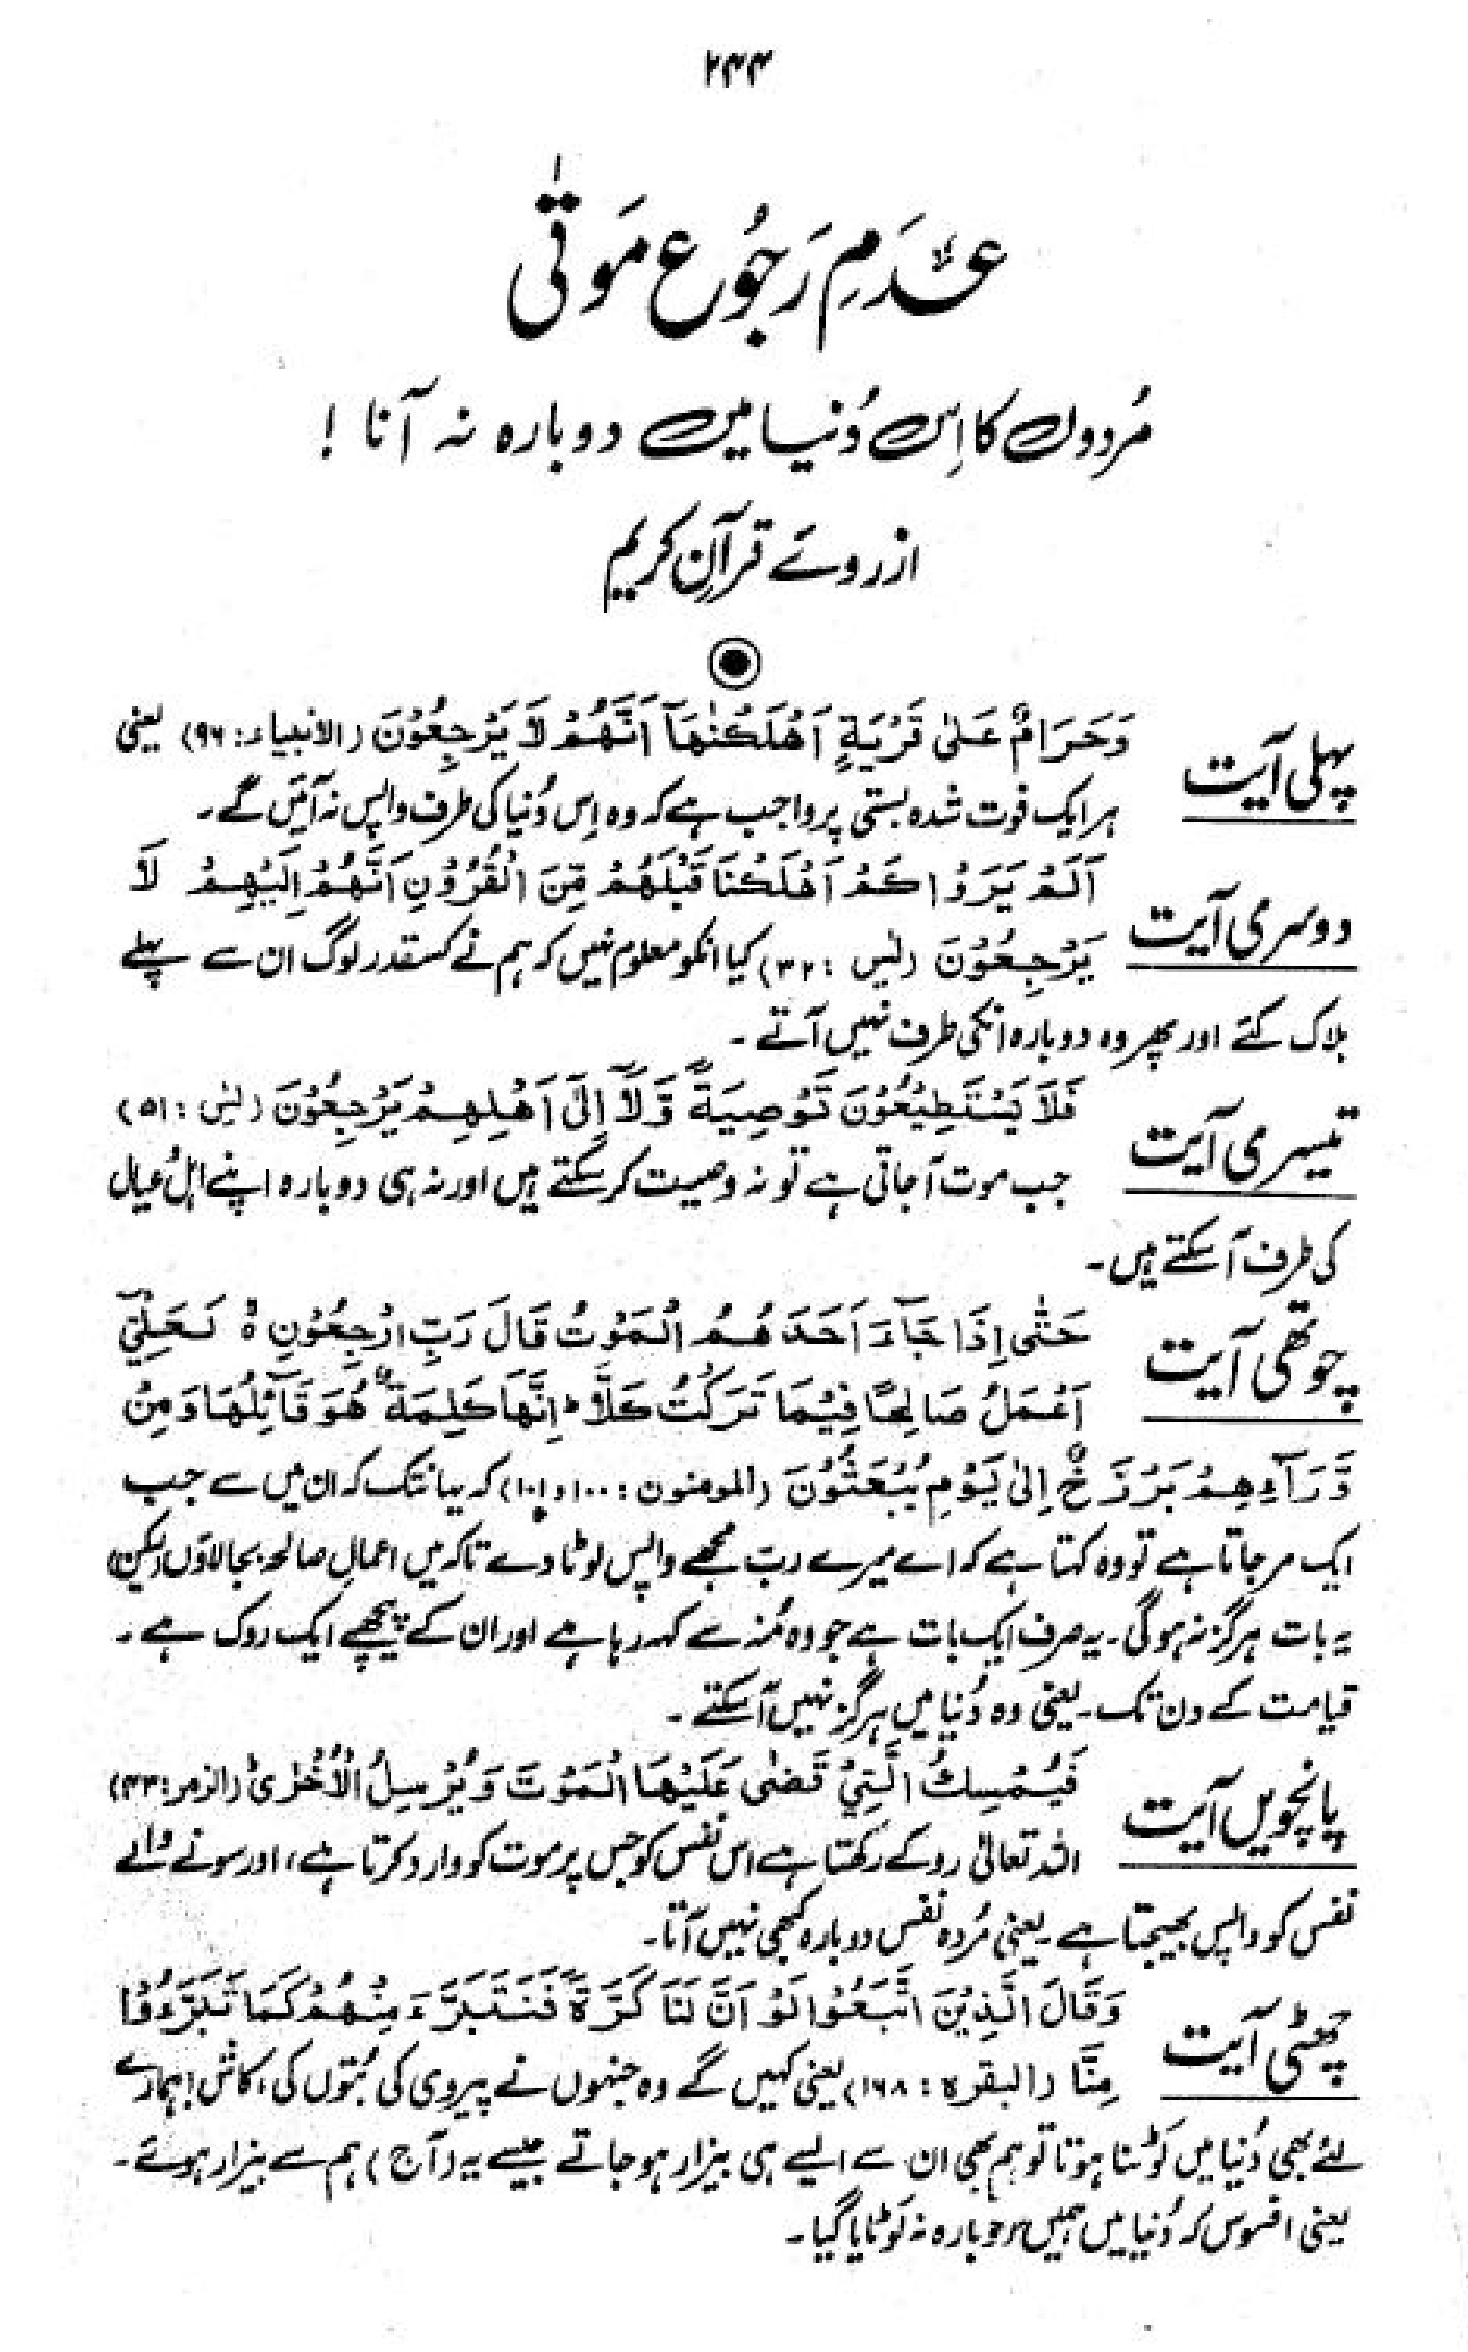 ۲۴۴
عدمِ رَجُوع مَوتٰی
مُردوں کا اِس دُنیا میں دوبارہ نہ آنا !
ازروئے قرآنِ کریم
پہلی آیت وَحَرَامٌ عَلٰی قَرْیَةٍ اَهْلَکْنٰهَآ اَنَّهُمْ لَا یَرْجِعُوْنَ (الانبیاء: ۹۶) یعنی
ہر ایک فوت شدہ بستی پر واجب ہے کہ وہ اِس دُنیا کی طرف واپس نہ آئیں گے۔
دوسری آیت اَلَمْ یَرَوْا کَمْ اَهْلَکْنَا قَبْلَهُمْ مِّنَ الْقُرُوْنِ اَنَّهُمْ اِلَیْهِمْ لَا
یَرْجِعُوْنَ (یٰس : ۳۲) کیا انکو معلوم نہیں کہ ہم نے کسقدر لوگ ان سے پہلے
ہلاک کئے اور پھر وہ دوبارہ انکی طرف نہیں آتے ۔
تیسری آیت فَلَا یَسْتَطِیْعُوْنَ تَوْصِیَةً وَّلَآ اِلٰٓی اَهْلِهِمْ یَرْجِعُوْنَ (یٰس : ۵۱)
جب موت آجاتی ہے تو نہ وصیت کر سکتے ہیں اور نہ ہی دوبارہ اپنے اہل عیال
کی طرف آسکتے ہیں۔
چوتھی آیت حَتّٰی اِذَا جَآءَ اَحَدَ هُمُ الْمَوْتُ قَالَ رَبِّ ارْجِعُوْنِ ۙ لَعَلِّیْٓ
اَعْمَلُ صَالِحًا فِیْمَا تَرَکْتُ کَلَّا ؕ اِنَّهَا کَلِمَةٌ هُوَ قَآئِلُهَا وَ مِنْ
وَّرَآءِهِمْ بَرْزَخٌ اِلٰی یَوْمِ یُبْعَثُوْنَ (المومنون : ۱۰۰ و ۱۰۱) کہ یہانتک کہ ان میں سے جب
ایک مر جاتا ہے تو وہ کہتا ہے کہ اے میرے ربّ مجھے واپس لوٹا دے تاکہ میں اعمال صالحہ بجا لاؤں (لیکن)
یہ بات ہرگز نہ ہوگی ۔ یہ صرف ایک بات ہے جو وہ مُنہ سے کہہ رہا ہے اور ان کے پیچھے ایک روک ہے ۔
قیامت کے دن تک ۔ یعنی وہ دُنیا میں ہرگز نہیں آسکتے ۔
پانچویں آیت فَیُمْسِکُ الَّتِیْ قَضٰی عَلَیْهَا الْمَوْتَ وَ یُرْسِلُ الْاُخْرٰی (الزمر: ۴۳)
اللہ تعالیٰ روکے رکھتا ہے اس نفس کو جس پر موت کو وارد کرتا ہے، اور سونے والے
نفس کو واپس بھیجتا ہے ۔ یعنی مُردہ نفس دوبارہ کبھی نہیں آتا۔
چھٹی آیت وَقَالَ الَّذِیْنَ اتَّبَعُوْا لَوْ اَنَّ لَنَا کَرَّةً فَنَتَبَرَّءَ مِنْهُمْ کَمَا تَبَرَّءُوْا
مِنَّا (البقرہ : ۱۶۸) یعنی کہیں گے وہ جنہوں نے پیروی کی بُتوں کی، کاش! ہمارے
لئے بھی دُنیا میں لَوٹنا ہوتا تو ہم بھی ان سے ایسے ہی بیزار ہو جاتے جیسے یہ (آج) ہم سے بیزار ہوئے۔
یعنی افسوس کہ دُنیا میں ہمیں دوبارہ نہ لَوٹایا گیا ۔